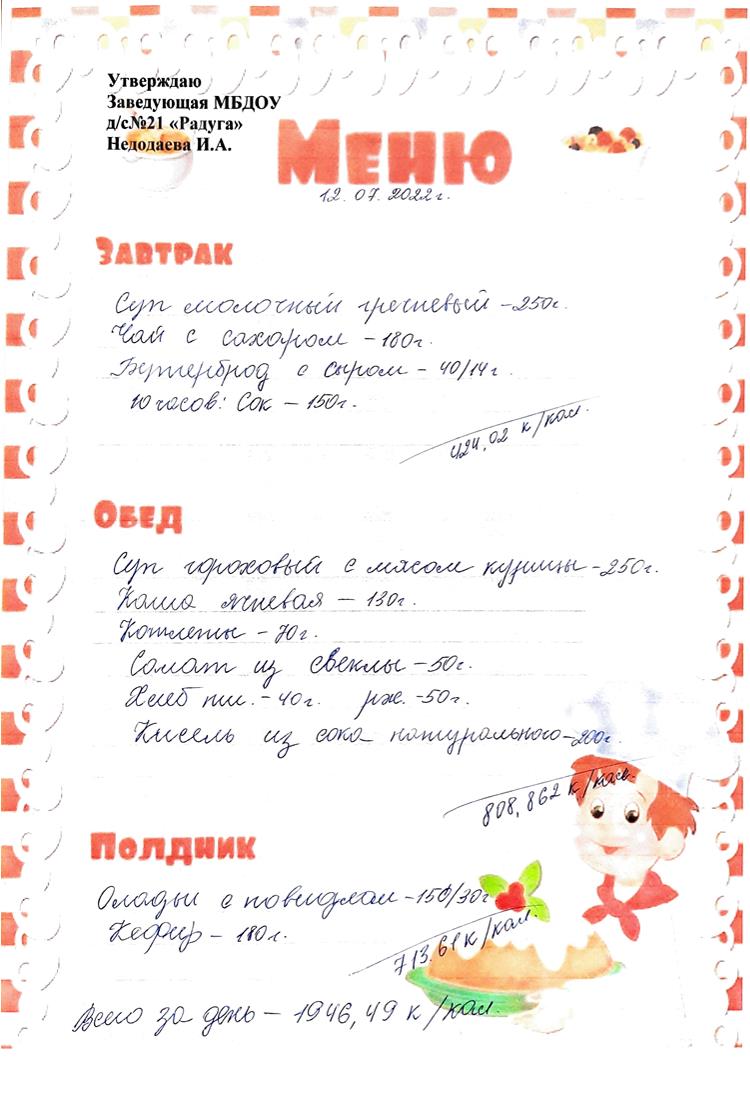 Утверждаю
Заведующая МБДОУ
д/с№21 «Радуга»
Недодаева И.А.
Меню
12.07.2022г.
Завтрак
Суп молочный гречневый – 250г.
Чай с сахаром – 180г.
Бутерброд с сыром – 40/14г.
10 часов: Сок – 150г.
424,02 к/кал.
Обед
Суп гороховый с мясом курицы – 250г.
Каша ячневая – 130г.
Котлеты – 70г.
Салат из свеклы – 50г.
Хлеб пш. – 40г. рж. – 50г.
Кисель из сока натурального – 200г.
808,862 к/кал.
Полдник
Оладьи с повидлом – 150/30г
Кефир – 180г.
713.61 к/кал.
Всего за день – 1946,49 к/кал.